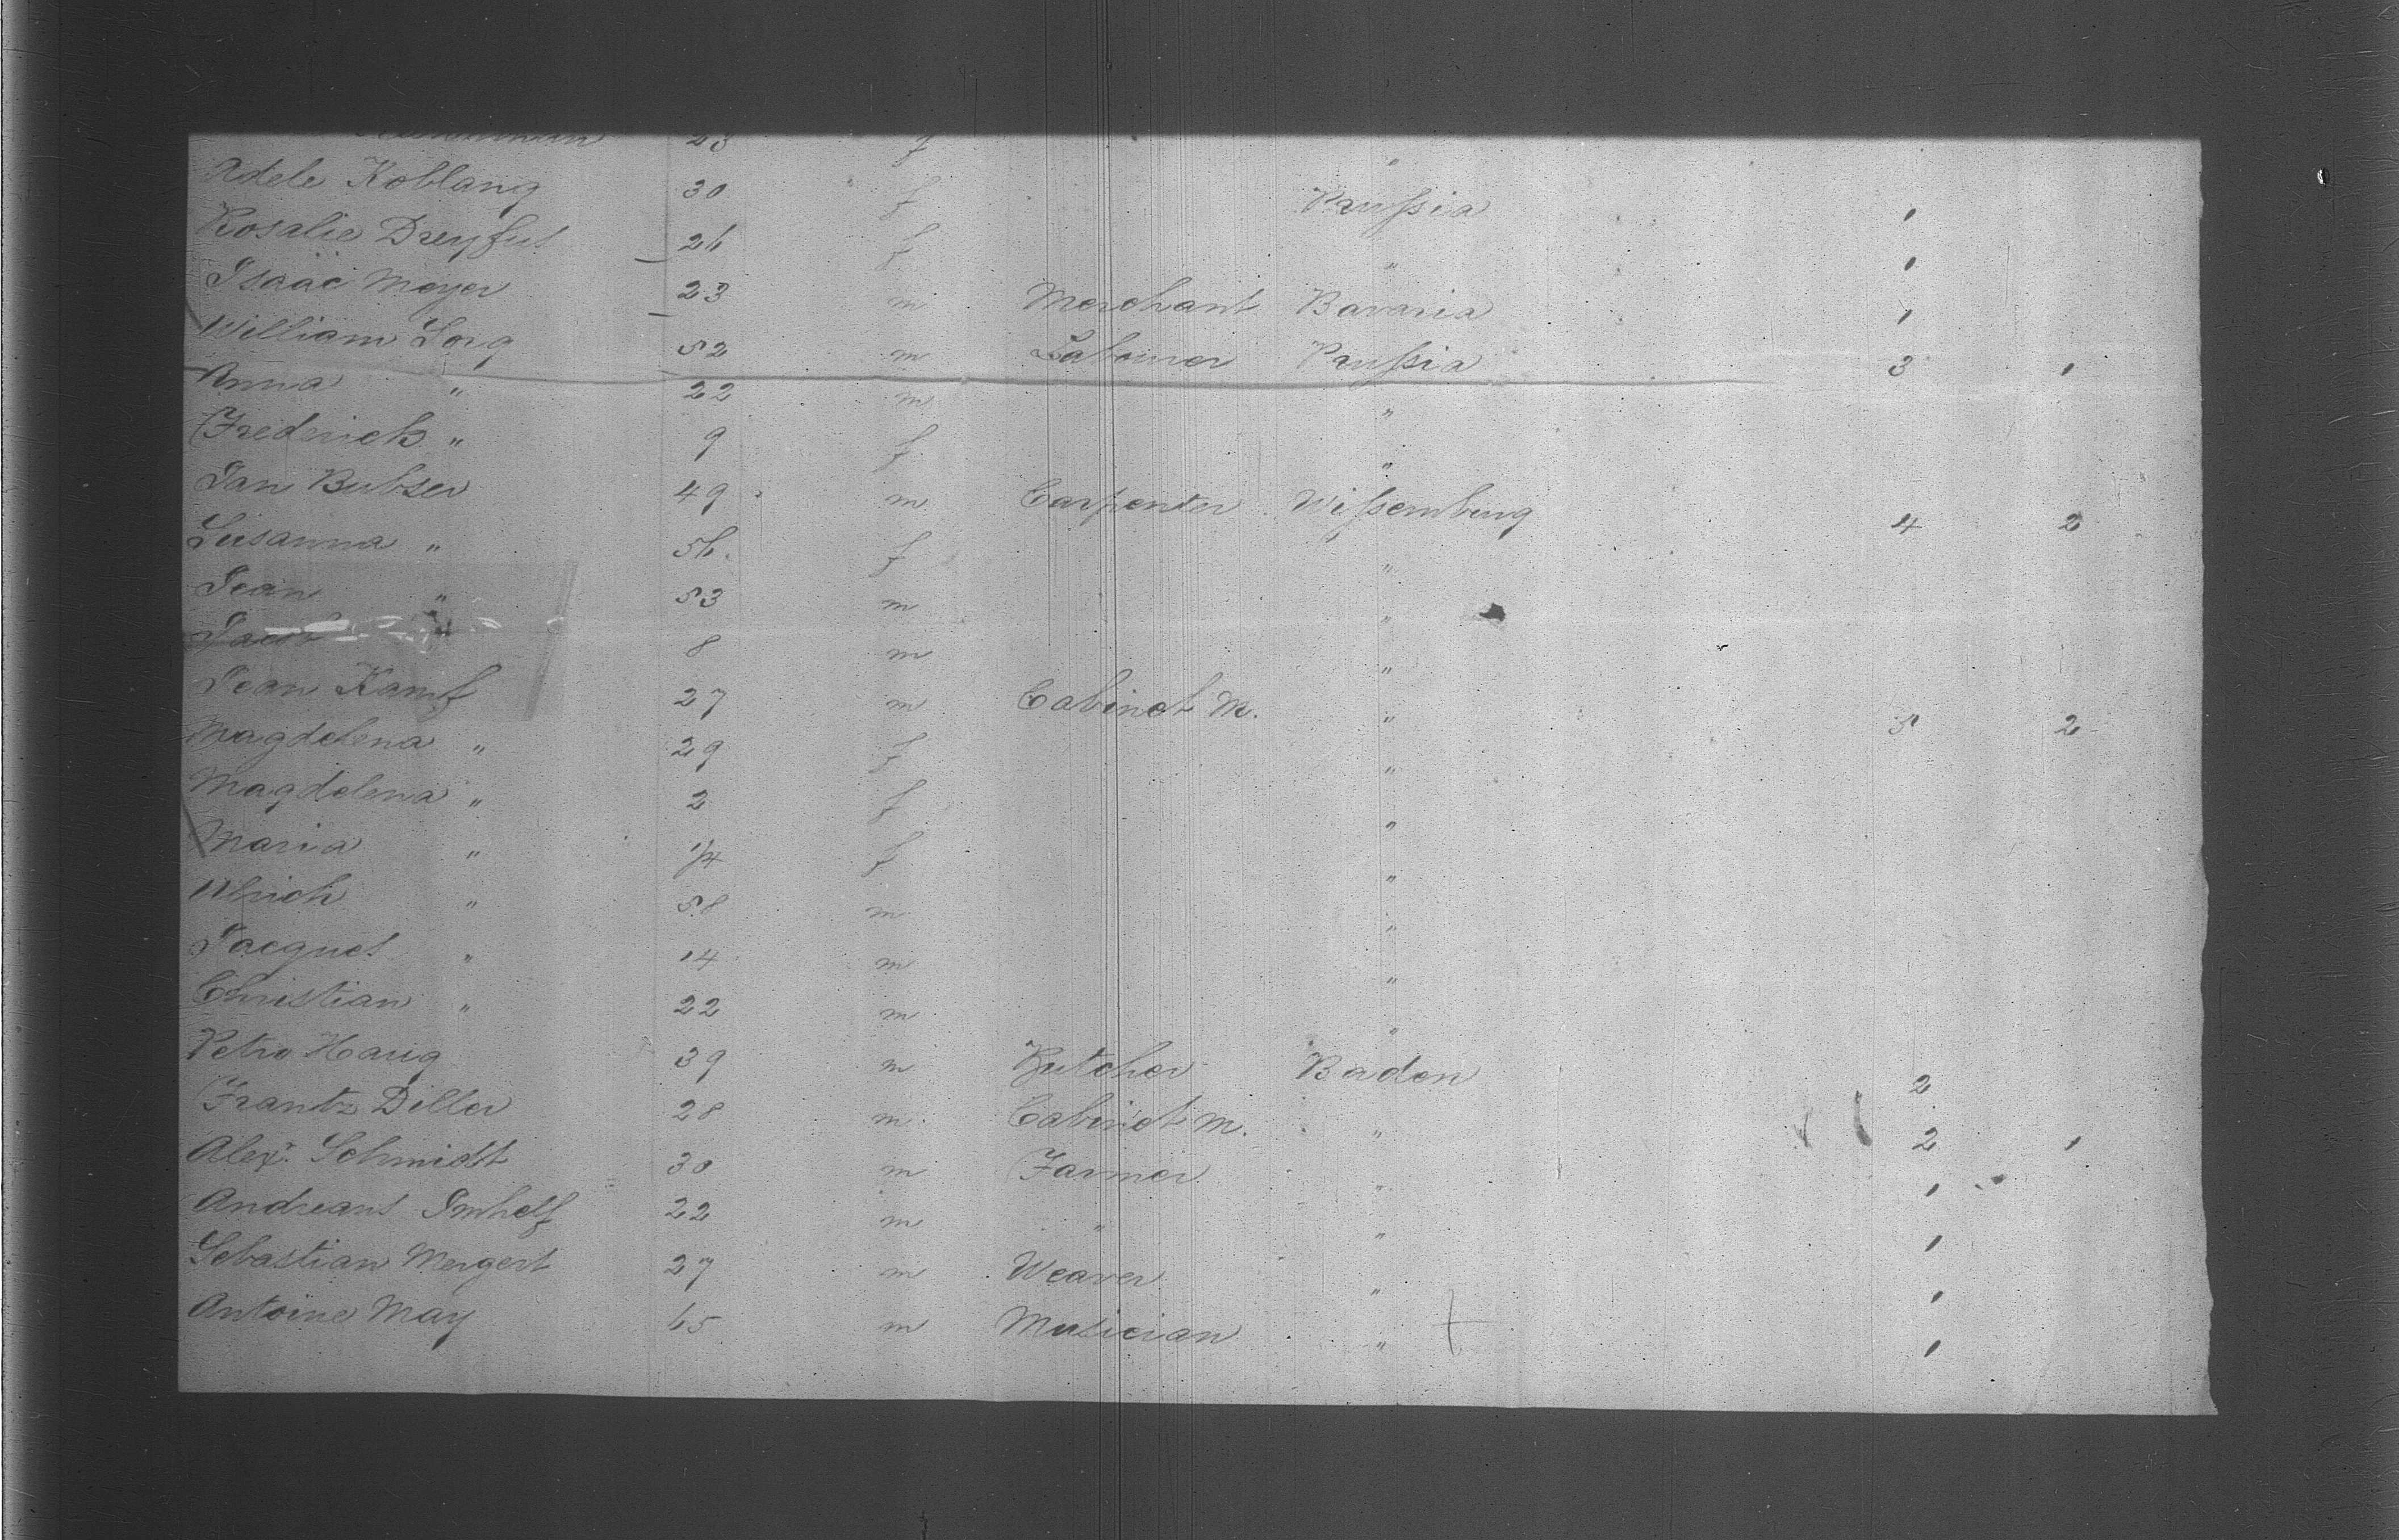 23 f "
Adele Koblang 30 " f Prussia 1
Rosalie Dreyfus 26 f " 1
Isaac Meyer 23 m Merchant Bavaria 1
William Sorg 52 m Labourer Prussia 3 1
Anna " 22 m "
Frederick " 9 f "
Jan Bubser 49 m Carpenter Wissemburg 4 2
Susanna " 56 f "
Jean " 53 m "
Jacob 8 m "
Jean Kamf 27 m Cabinet M. " 5 2
Magdelena " 29 f "
Magdelena " 2 f "
Maria " 1/4 f "
Ulrich " 58 m "
Jacques " 14 m "
Christian " 22 m "
Petro Haug 39 m Butcher Baden 2
Frantz Diller 28 m Cabinet M. " 2 1
Alex. Schmidt 30 m Farmer " 1
Andreans Imhelf 22 m " " 1
Sebastian Mergert 27 m Weaver " 1
Antoine May 65 m Musician " 1